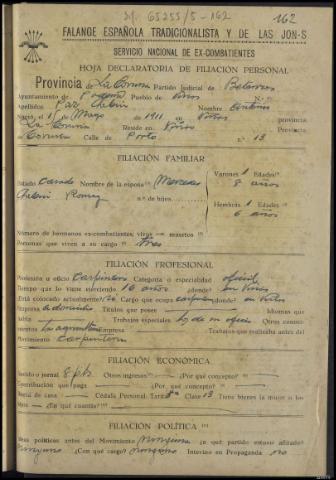 162
FALANGE ESPAÑOLA TRADICIONALISTA Y DE LAS JON-S
SERVICIO NACIONAL DE EX-COMBATIENTES
HOJA DECLARATORIA DE FILIACIÓN PERSONAL
Provincia de La Coruña Partido Judicial de Betanzos
Ayuntamiento de Pueblo de Viños
Apellidos Paz Nombre
Nació el 1º Marzo 1911 en Viños provincia
La Coruña Reside en Viños Provincia
Coruña Calle de Porto n.º 13
FILIACIÓN FAMILIAR
Varones 1 Edades
Estado Casado Nombre de la esposa 8 años
n.º de hijos
Hembras 1 Edades
6 años
Número de hermanos ex-combatientes, vivos muertos
Personas que viven a su cargo tres
FILIACIÓN PROFESIONAL
Profesión u oficio Carpintero Categoría o especialidad oficial
Tiempo que lo viene ejerciendo 16 años ¿dónde? en Viños
Está colocado actualmente Cargo que ocupa carpintero ¿dónde? en Viños
Empresa a domicilio Títulos que posee Idiomas que
habla Trabajos especiales los de mi oficio Otros conoci-
mientos Empresa Trabajos que realizaba antes del
Movimiento carpintero
FILIACIÓN ECONÓMICA
Sueldo o jornal 8 pts Otros ingresos ¿Por qué concepto?
Contribución que paga ¿Por qué concepto?
Social de casa Cédula Personal: Tarifa Clase 13 Tiene bienes la mujer o los
hijos ¿En qué cuantía?
FILIACIÓN POLÍTICA
Ideas políticas antes del Movimiento ninguna ¿en qué partido estuvo afiliado?
ninguno ¿Con qué cargo? ninguno Intervino en Propaganda no